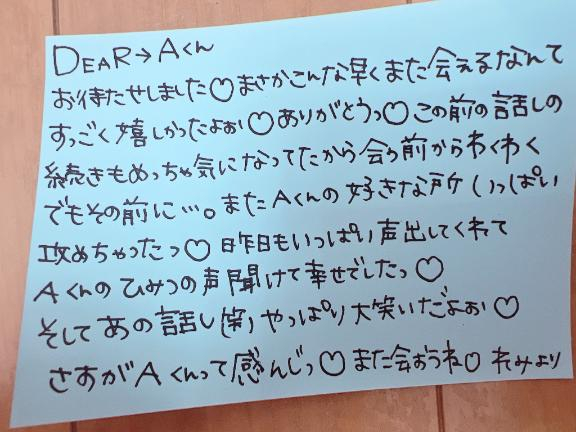 DEAR→Aくん
お待たせしました♡まさかこんな早くまた会えるなんて
すっごく嬉しかったよぉ♡ありがとうっ♡この前の話しの
続きもめっちゃ気になってたから会う前からわくわく
でもその前に…。またAくんの好きな所いっぱい
攻めちゃったっ♡昨日もいっぱい声出してくれて
Aくんのひみつの声聞けて幸せでしたっ♡
そしてあの話し(笑)やっぱり大笑いだよぉ♡
さすがAくんって感んじっ♡また会おうね♡れみより